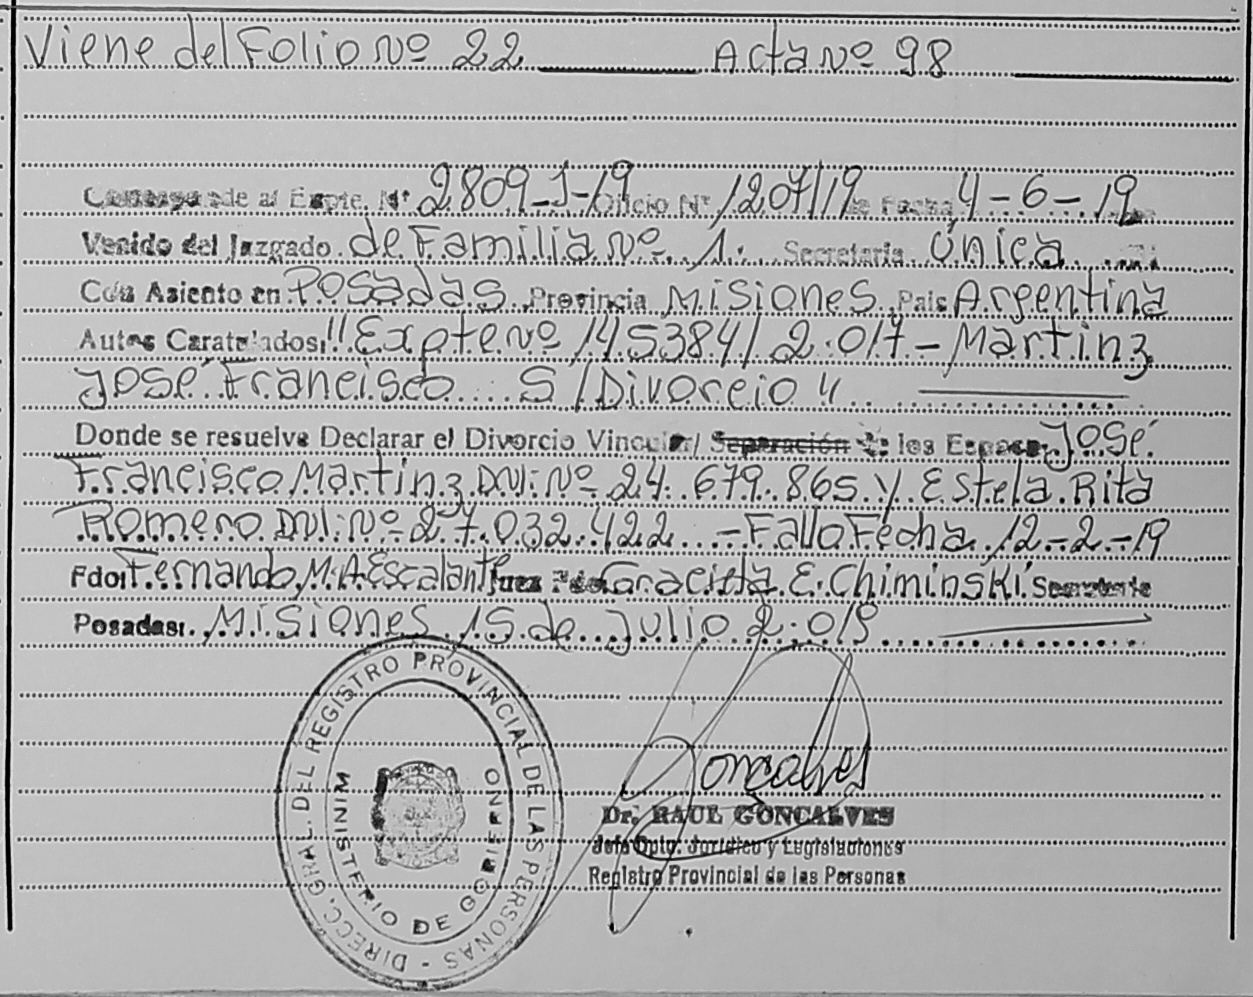 Viene del Folio Nº 22 Acta Nº 98
Corresponde al Expte. Nº 2809-J-19 Oficio Nº 1207/19 de Fecha 4-6-19
Venido del Juzgado de Familia Nº 1. Secretaría Única
Con Asiento en Posadas Provincia Misiones País Argentina
Autos Caratulados: "Expte Nº 145384/2.017 - Martinz
José Francisco S/Divorcio"
Donde se resuelve Declarar el Divorcio Vincular/ Separación de los Esposos José
Francisco Martinz DNI: Nº 24.679.865 y Estela Rita
Romero DNI: Nº 27.032.422 - Fallo Fecha 12-2-19
Fdo: Fernando M.A Escalante Juez Fdo Graciela E. Chiminski Secretaria
Posadas: Misiones 15 de Julio 2.019
DIRECC. GRAL. DEL REGISTRO PROVINCIAL DE LAS PERSONAS -
MINISTERIO DE GOBIERNO
Goncalves
Dr. RAUL GONCALVES
Jefe Dpto. Jurídico y Legislaciones
Registro Provincial de las Personas